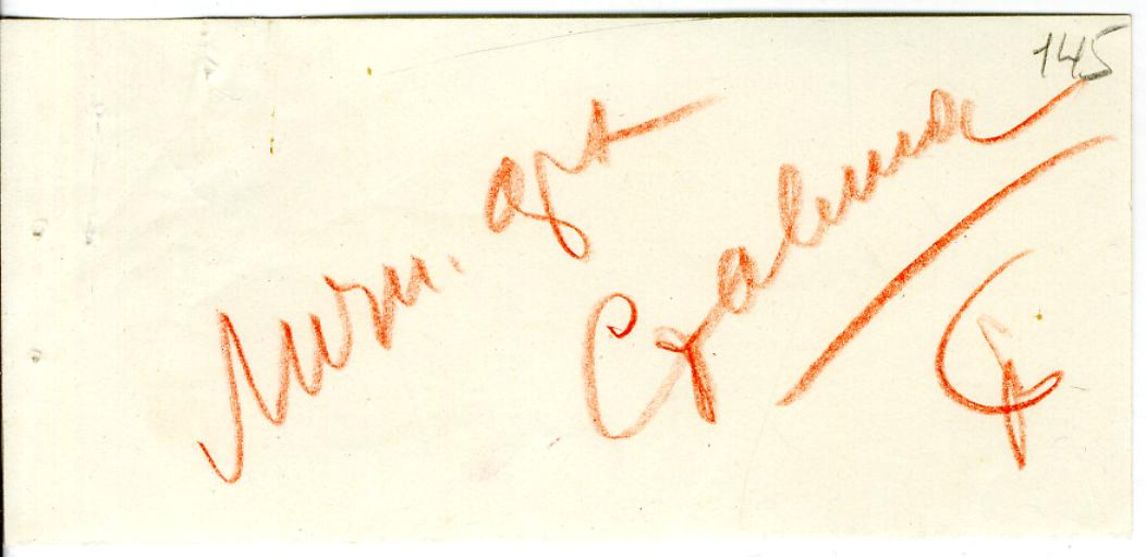 145
Личн. арх
Сталина